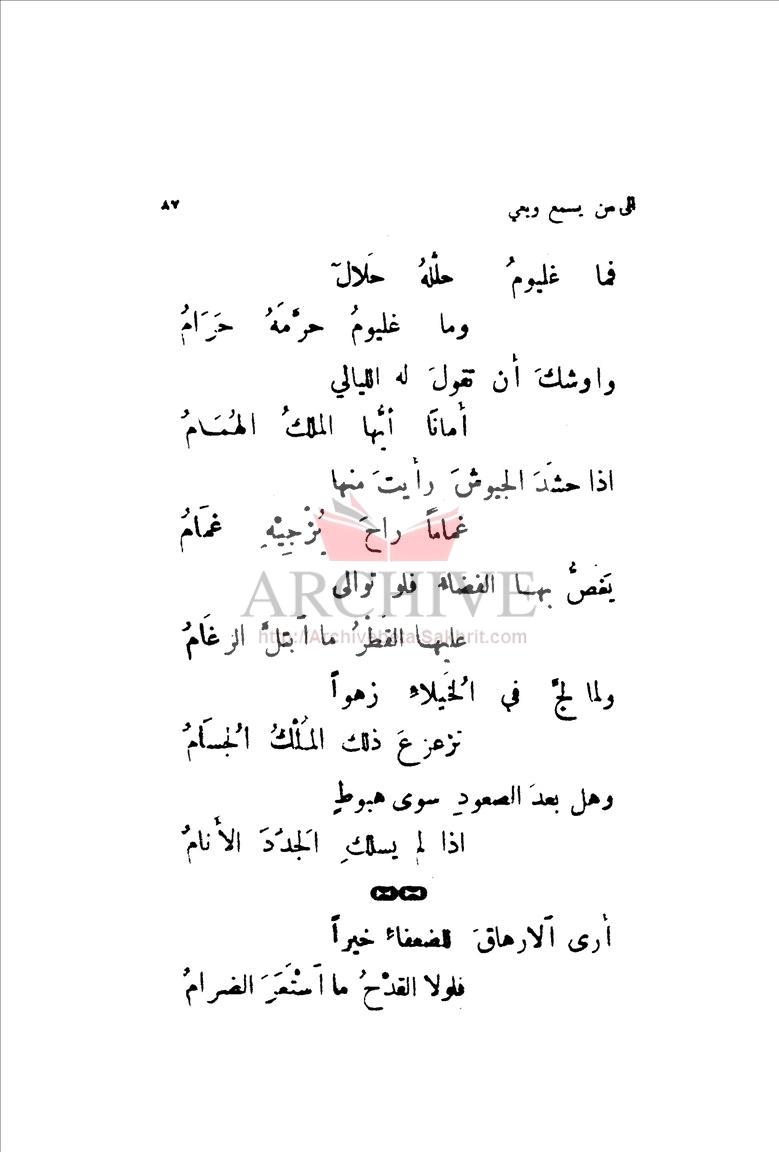 الى من يسمع ويعي ٨٧
فما غليومُ حلَّلهُ حلالٌ
وما غليومُ حرَّمَهُ حَرَامُ
واوشكَ أن تقولَ له الليالي
أمانًا أيُّها الملكُ الهُمَامُ
اذا حشدَ الجيوشَ رأيتَ منها
غماماً راحَ يُزْجِيْهِ غمَامُ
يَغصُّ بهـا الفضاء فلو توالى
عليهـا القَطْرُ ما ٱبتلَّ الرغَامُ
ولما لجَّ في الخُيلاءِ زهواً
تزعزعَ ذلك المُلْكُ الجُسَامُ
وهل بعدَ الصعودِ سوى هبوطٍ
اذا لم يسلكِ الجَدَدَ الأنامُ
أرى الارهاقَ للضعفاءِ خيراً
فلولا القدْحُ ما ٱسْتَعَرَ الضرامُ
ARCHIVE
http://Archivebeta.Sakhrit.com